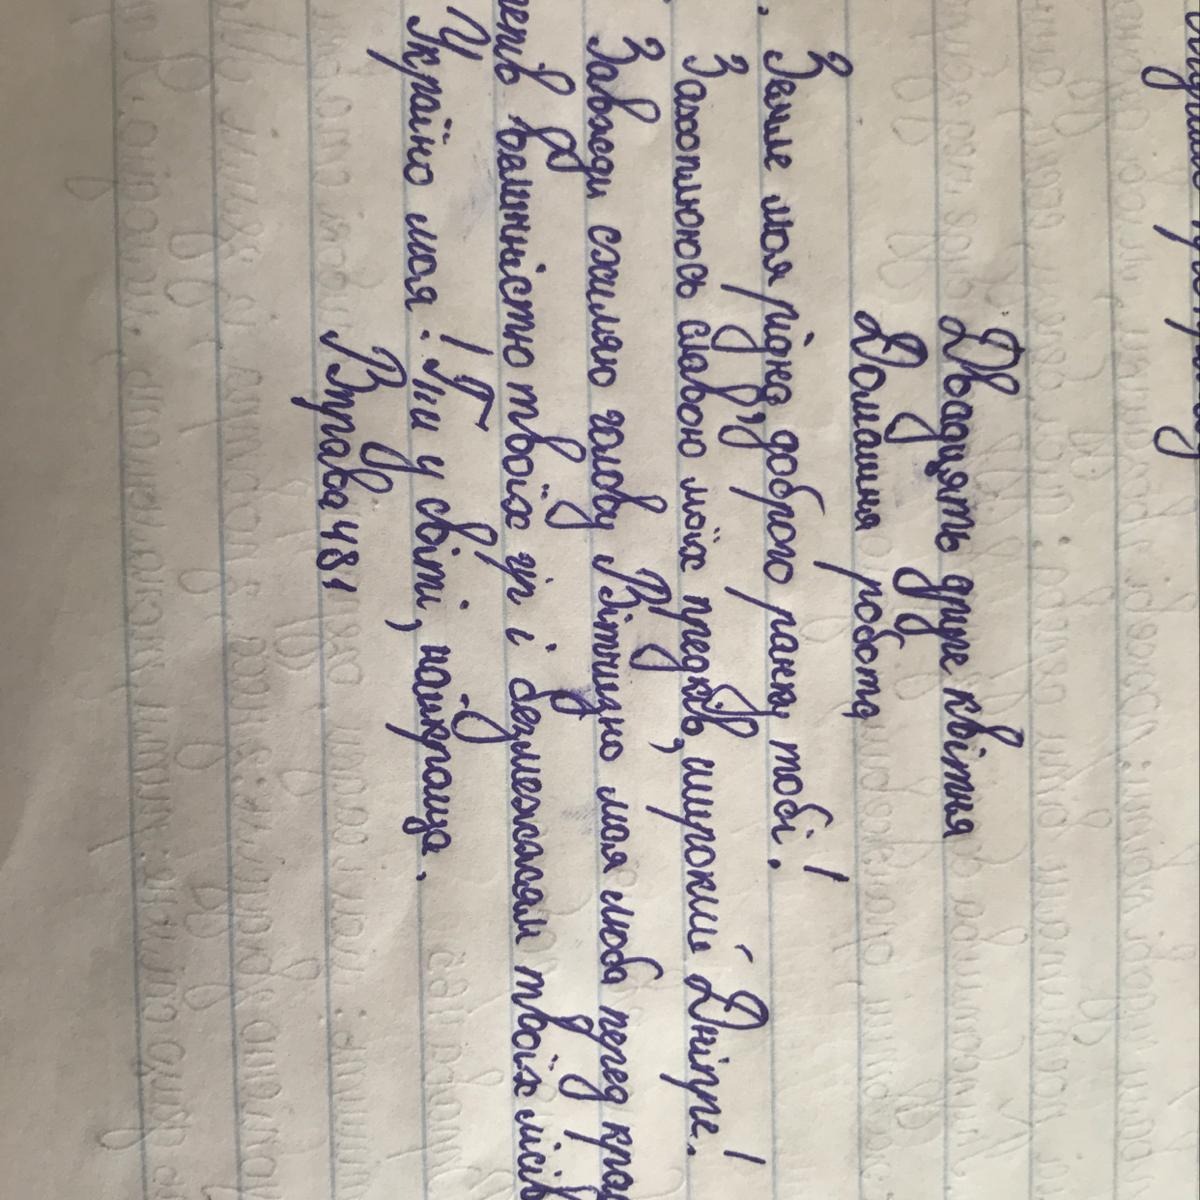 Двадцять друге квітня
Домашня робота
Земле моя рідна, доброго ранку тобі!
Захоплююсь славою моїх предків, широкий Дніпре!
Завжди схиляю голову Вітчизно моя люба перед
величністю твоїх гір і безмежжям твоїх лісів
Україно моя! Ти у світі, найкраща.
Вправа 481